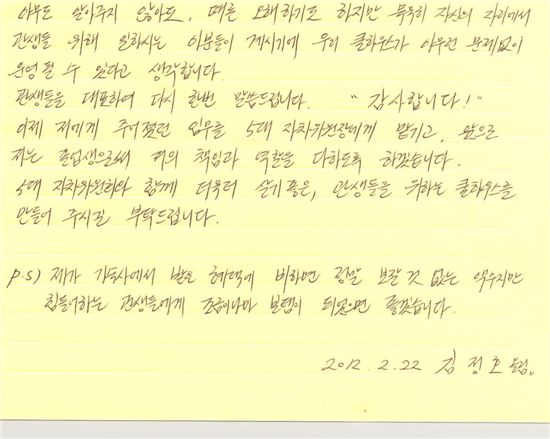 아무도 알아주지 않아도, 때론 오해하기도 하지만 묵묵히 자신의 자리에서
관생들을 위해 일하시는 이분들이 계시기에 우리 쿨하우스가 아무런 문제없이
운영될 수 있다고 생각합니다.
관생들을 대표하여 다시 한번 말씀드립니다. "감사합니다!"
이제 저에게 주어졌던 임무를 5대 자치위원장에게 맡기고, 앞으로
저는 졸업생으로써 저의 책임과 역할을 다하도록 하겠습니다.
5대 자치위원회와 함께 더욱더 살기좋은, 관생들을 위하는 쿨하우스를
만들어 주시길 부탁드립니다.
p.s) 제가 기숙사에서 받은 혜택에 비하면 정말 보잘 것 없는 액수지만
힘들어하는 관생들에게 조금이나마 보탬이 되었으면 좋겠습니다.
2012. 2. 22 김정호 드림.